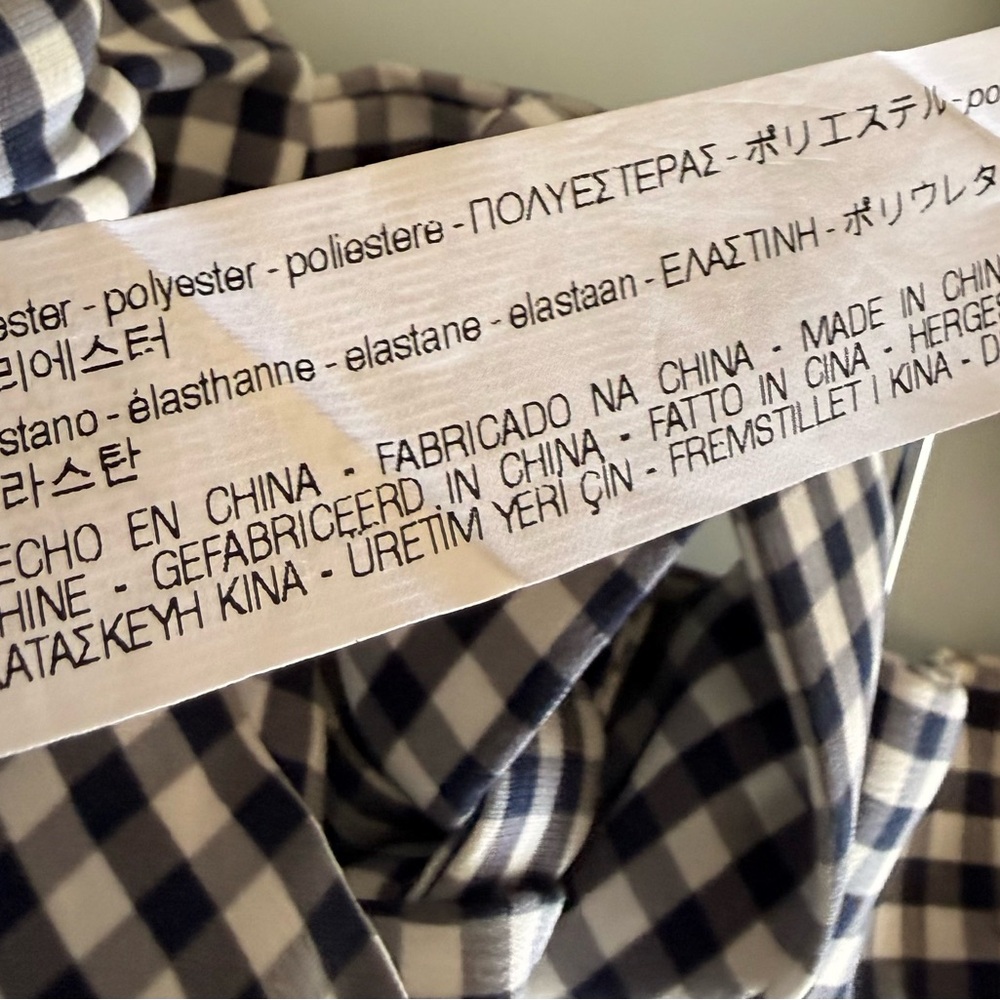 ester - polyester - poliestere - ΠΟΛΥΕΣΤΕΡΑΣ - ポリエステル - po
리에스터
stano - élasthanne - elastane - elastaan - ΕΛΑΣΤΙΝΗ - ポリウレタ
라스탄
ECHO EN CHINA - FABRICADO NA CHINA - MADE IN CHIN
HINE - GEFABRICEERD IN CHINA - FATTO IN CINA - HERGES
ΑΤΑΣΚΕΥΗ ΚΙΝΑ - ÜRETİM YERİ ÇİN - FREMSTILLET I KINA - D